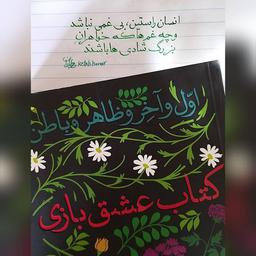 انسان راستین، بی غمی نباشد
وچه غم‌ها که خواهرانِ
بزرگ شادی ها باشند
اوّل و آخر و ظاهر و باطن
کتاب عشق بازی